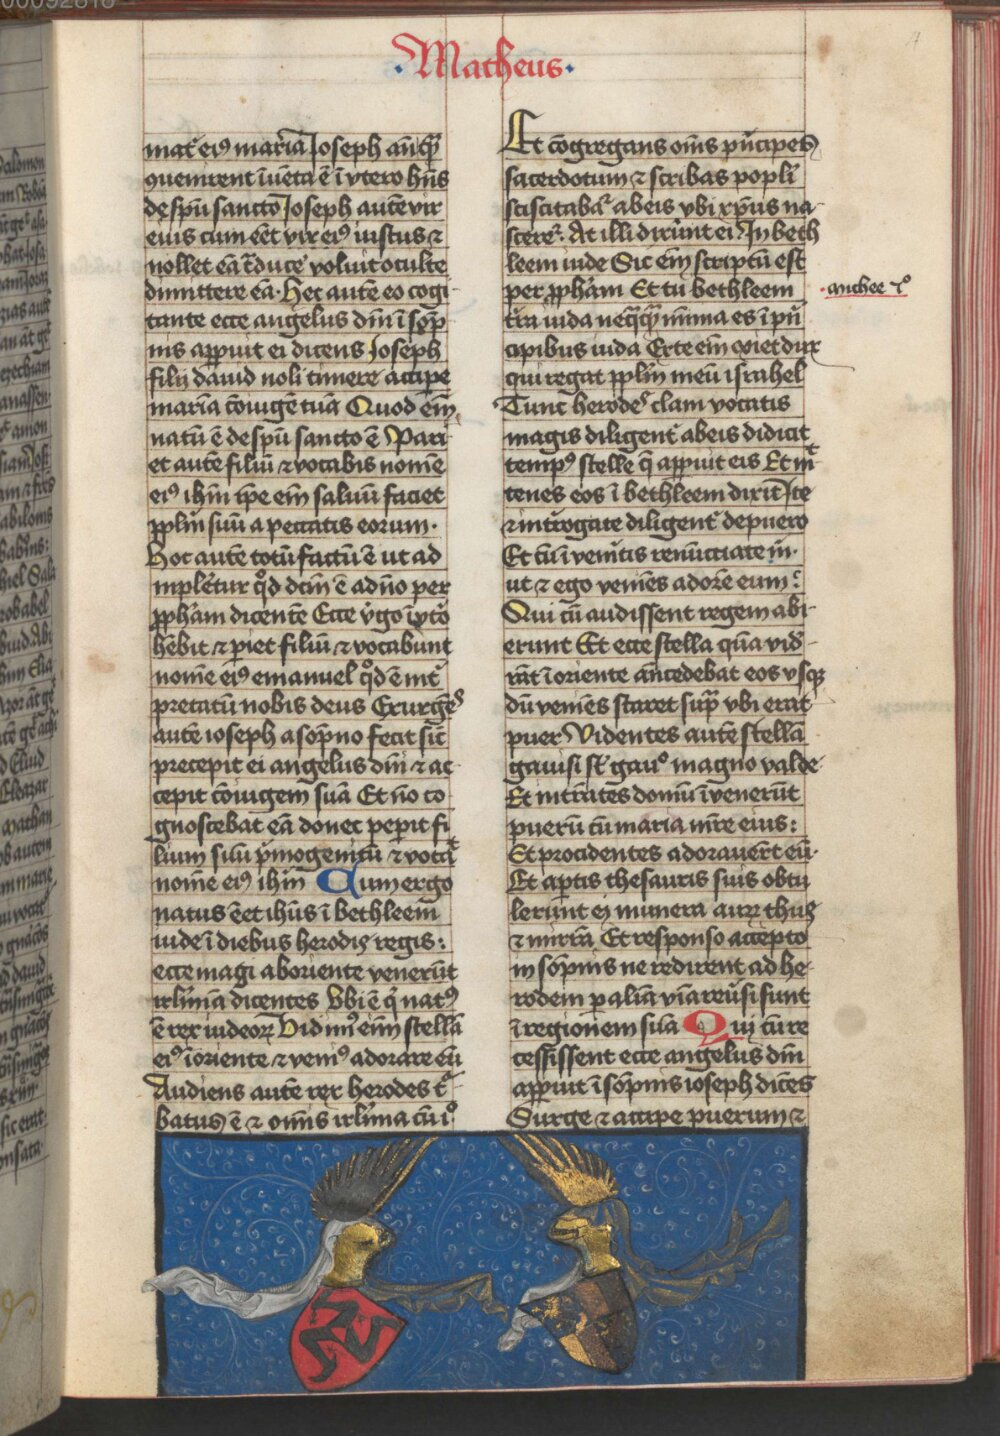 00092818
·Matheus·
mat̄ eiꝰ maria Ioseph anteq̄ꝫ
ꝯuenirent īuēta ē ī vtero hn̄s
de sp̄u sancto Ioseph autē vir
euis cum eēt vir eiꝰ iustus ⁊
nollet eā t̄duce᷑ voluit oculte
dimittere eā· Hec autē eo cogi
tante ecce angelus dn̄i ī sōp
nis aꝑpuit ei dicens Ioseph
filij dauid noli timere accipe
mariā cōiugē tuā Quod em̄
natū ē de sp̄u sancto ē Pari᷑
et autē filiū ⁊ vocabis nomē
eiꝰ ih̄m ip̄e em̄ saluū faciet
pp̄lm̄ suū a peccatis eorum·
Hoc autē totū factū ē ut ad
implet᷑ur qd̄ dictū ē a dn̄o per
ꝓphām dicentē Ecce v̄go ī vt̄o
hēbit ⁊ p̄iet filiū ⁊ vocabunt
nomē eiꝰ emanuel qd̄ ē int᷑
pretatū nobis deus Exurgēs
autē ioseph a sōpno fecit sic̄
precepit ei angelus dn̄i ⁊ ac
cepit cōiugem suā Et nō co
gnoscebat eā donec peperit fi
lium suū p̄mogenitū ⁊ vocā
nomē eiꝰ ih̄m Cum ergo
natus eēt ih̄us ī bethleem
iude ī diebus herodis regis:
ecce magi ab oriente venerūt
irl̄imā dicentes Vbi ē q̄ natꝰ
ē rex iudeoꝝ Vidimꝰ eiīm stellā
eiꝰ ī oriente ⁊ venimꝰ adorare eū
Audiens autē rex herodes t᷑
batus ē ⁊ omīs irl̄ima cū i°
Et cōgregans om̄s p̄ncipes
sacerdotum ⁊ scribas popl̄i
sciscitabat᷑ ab eis vbi xp̄us na
sceret᷑· At illi dixūnt ei In beth
leem iude Sic em̄ scriptū est
per ꝓphām Et tu bethleem
·michee v°
t̄ra iuda neq̄q̄ꝫ minima es ī pn̄
cipibus iuda Ex te em̄ exiet dux
qui regat pp̄lm̄ meū israhel
Tunc herodeˢ clam vocatis
magis diligent᷑ ab eis didicit
tempꝰ stelle q̄ aꝑpuit eis Et mi᷑
tenes eos ī bethleem dixit Ite
⁊ interogate diligent᷑ de puero
Et cū īvenītis renūcciate m̄·
ut ⁊ ego veniēs adorē eum:
Qui cū audissent regem abi
erunt Et ecce stella quā vid᷑
rāt ī oriente āntecedebat eos vsqꝫ
dū veniēs staret sup᷑ vbi erat
puer Videntes autē stellā
gauisi st̄ gau° magno valde
Et intrātes domū īvenerūt
puerū cū maria mr̄e eius:
Et procidentes adorauer̄t eū·
Et aꝑtis thesauris suis obtu
lerūnt ei munera auꝝ thus
⁊ mirrā Et responso accepto
in sōpnis ne redirent ad he
rodem p aliā viā reu᷑si sunt
ī regionem suā Qui cū re
cessissent ecce angelus dn̄i
aꝑpuit ī sōpnis ioseph dicēs
Surge ⁊ accipe puerum ⁊